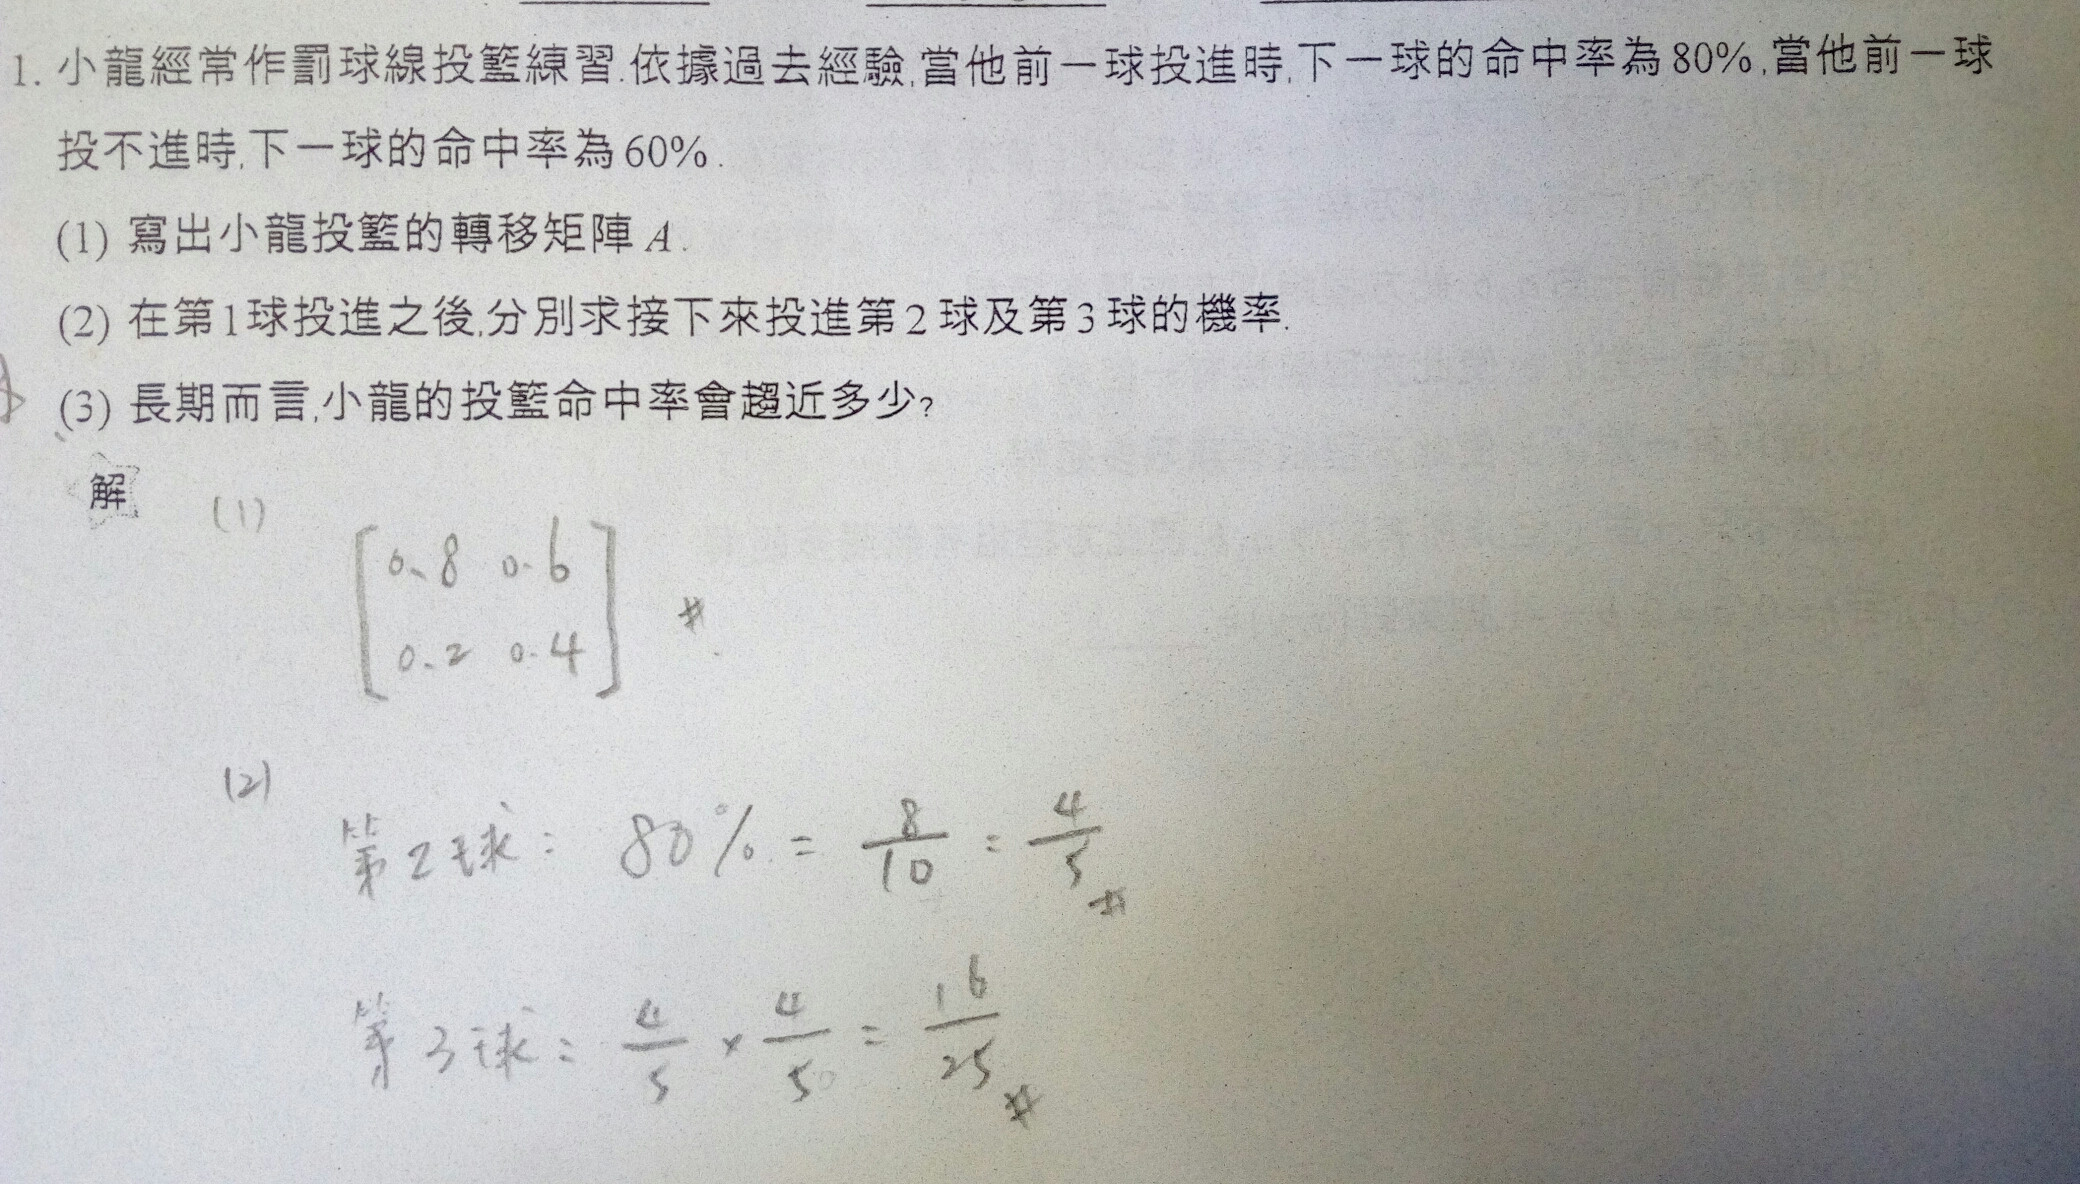 1. 小龍經常作罰球線投籃練習.依據過去經驗,當他前一球投進時,下一球的命中率為80%,當他前一球
投不進時,下一球的命中率為60%.
(1) 寫出小龍投籃的轉移矩陣 A.
(2) 在第1球投進之後,分別求接下來投進第2球及第3球的機率.
(3) 長期而言,小龍的投籃命中率會趨近多少?
解
(1)
0.8 0.6
0.2 0.4 #
(2)
第2球: 80% = 8/10 = 4/5 #
第3球: 4/5 × 4/5 = 16/25 #